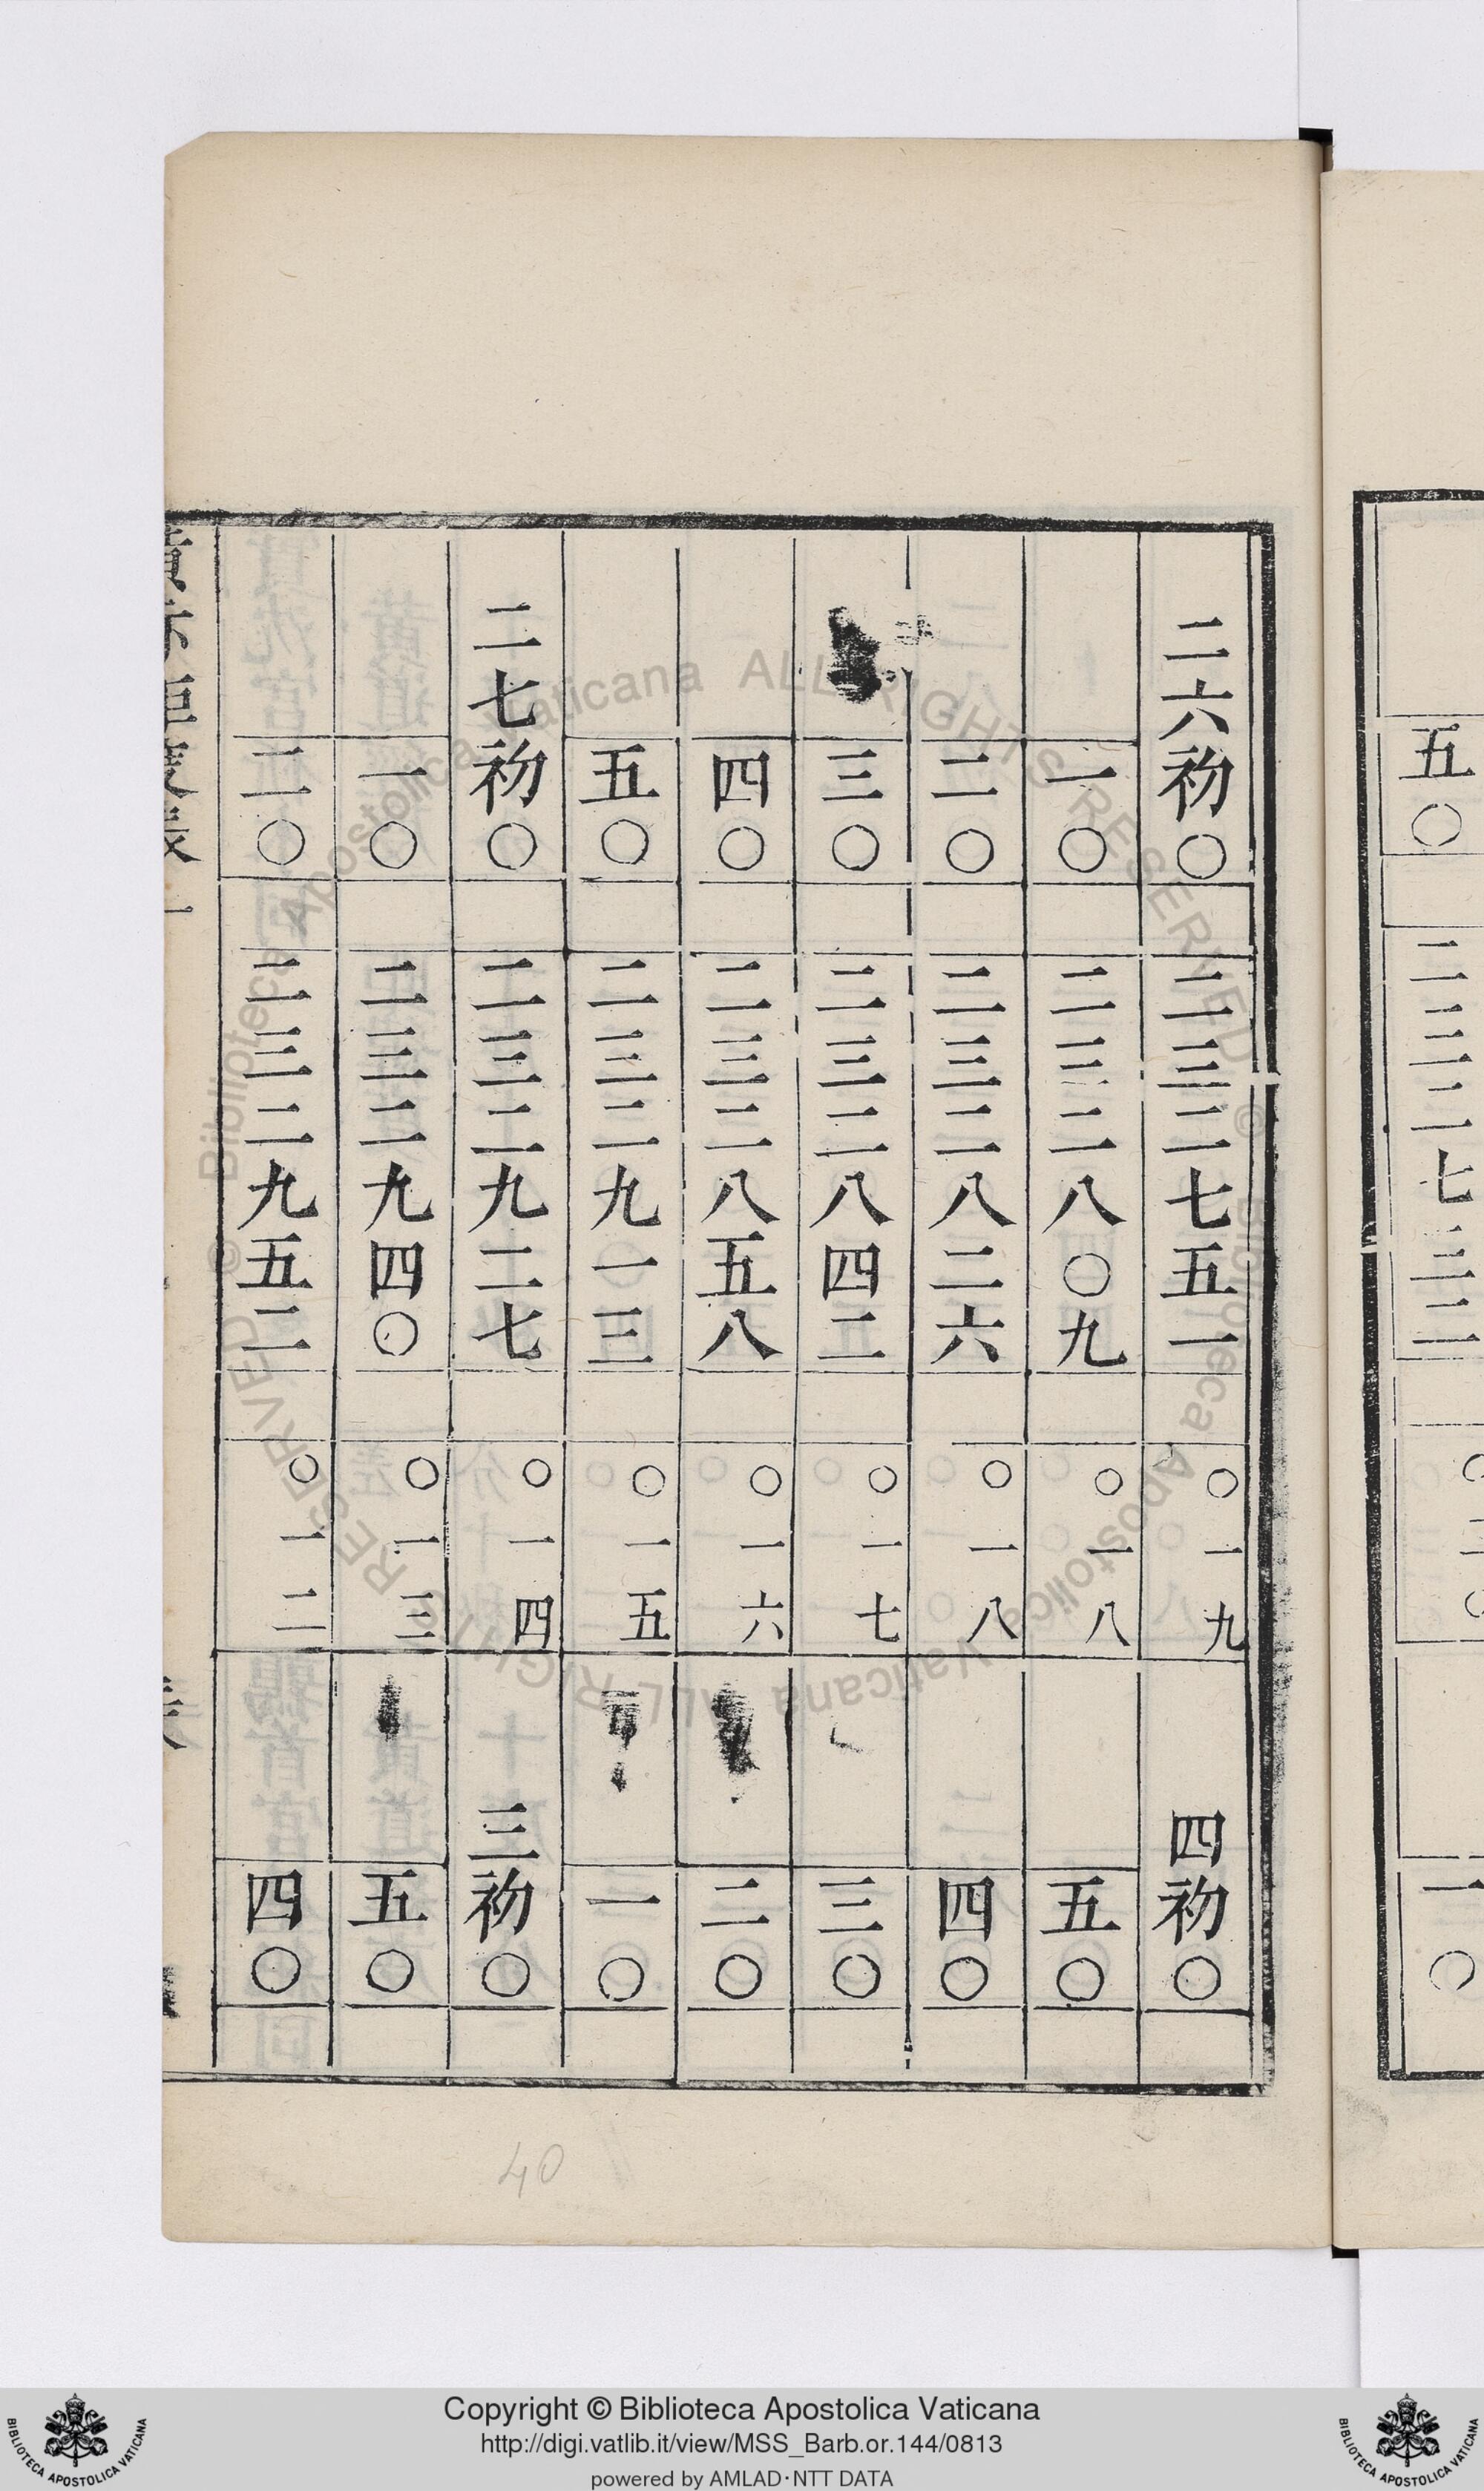 五〇
二三二七三二
一〇
二六初〇 二三二七五一 〇一九 四初〇
一〇 二三二八〇九 〇一八 五〇
二〇 二三二八二六 〇一八 四〇
三〇 二三二八四二 〇一七 三〇
四〇 二三二八五八 〇一六 二〇
五〇 二三二九一三 〇一五 一〇
二七初〇 二三二九二七 〇一四 三初〇
一〇 二三二九四〇 〇一三 五〇
二〇 二三二九五二 〇一二 四〇
40
© Biblioteca Apostolica Vaticana ALL RIGHTS RESERVED
© Biblioteca Apostolica Vaticana ALL RIGHTS RESERVED
Copyright © Biblioteca Apostolica Vaticana
http://digi.vatlib.it/view/MSS_Barb.or.144/0813
powered by AMLAD·NTT DATA
BIBLIOTECA APOSTOLICA VATICANA
BIBLIOTECA APOSTOLICA VATICANA